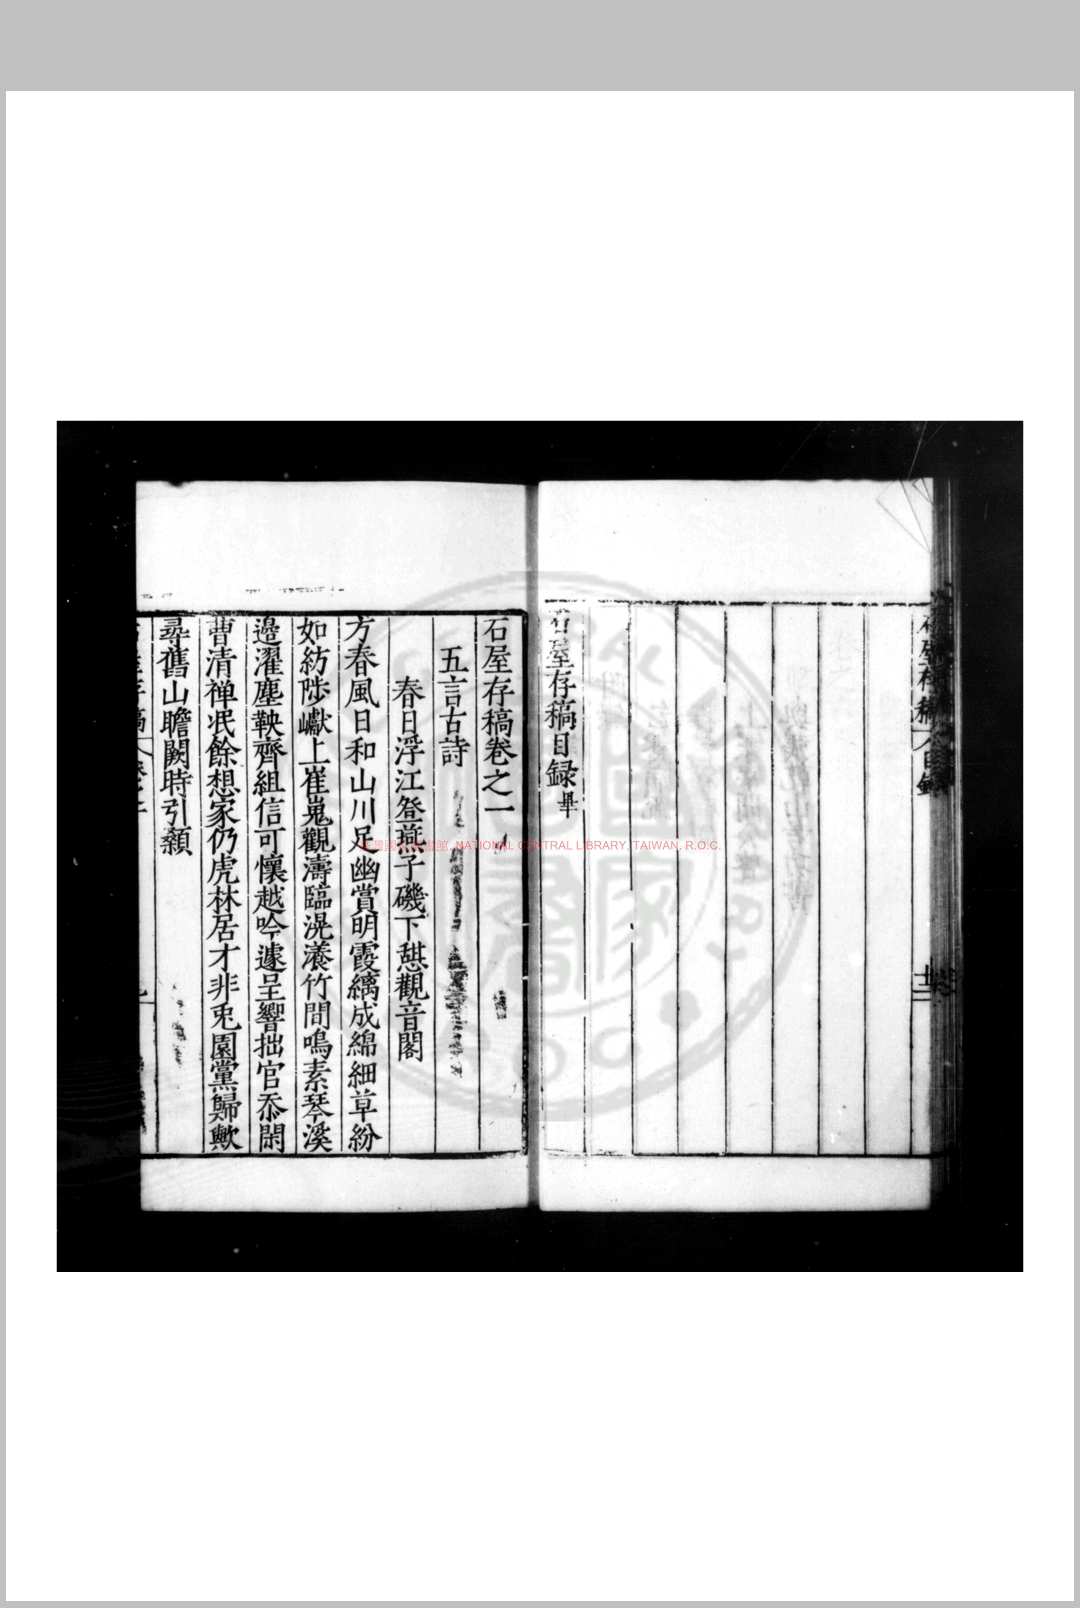 石屋存稿目録畢
石屋存稿卷之一
五言古詩
春日浮江登燕子磯下憇觀音閣
方春風日和山川足幽賞明霞縭成綿細草紛
如紡陟巘上崔嵬觀濤臨滉瀁竹間鳴素琴溪
邊濯塵鞅齊組信可懷越吟遽呈響拙官忝閑
曹清禅泯餘想家仍虎林居才非兎園黨歸歟
尋舊山瞻闕時引顙
NATIONAL CENTRAL LIBRARY, TAIWAN, R.O.C.